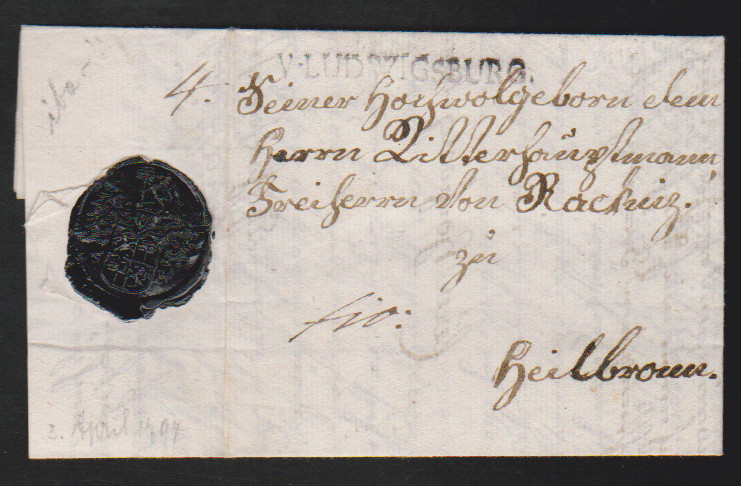 V·LUDWIGSBURG.
4.
Seiner Hochwolgeborn dem
Herrn Ritterhauptmann
Freiherrn von Rackniz.
zu
fro:
Heilbronn.
3. April 1797